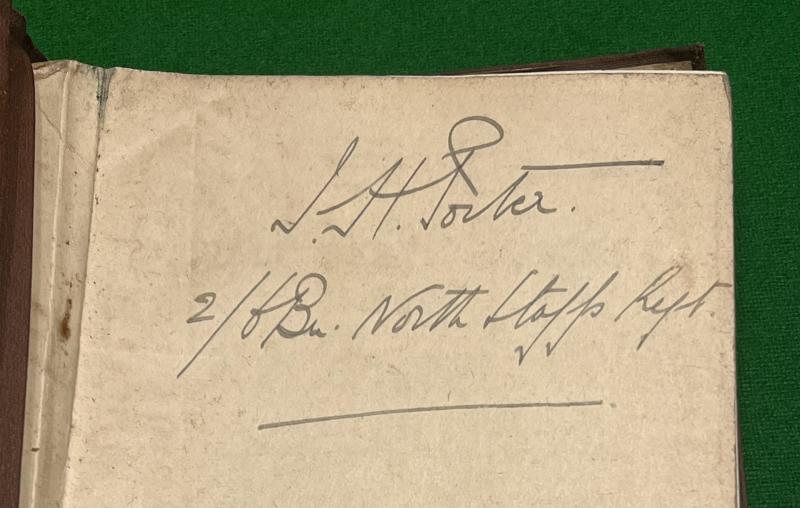 J. H. Porter.
2/6 Bn. North Staffs Regt.